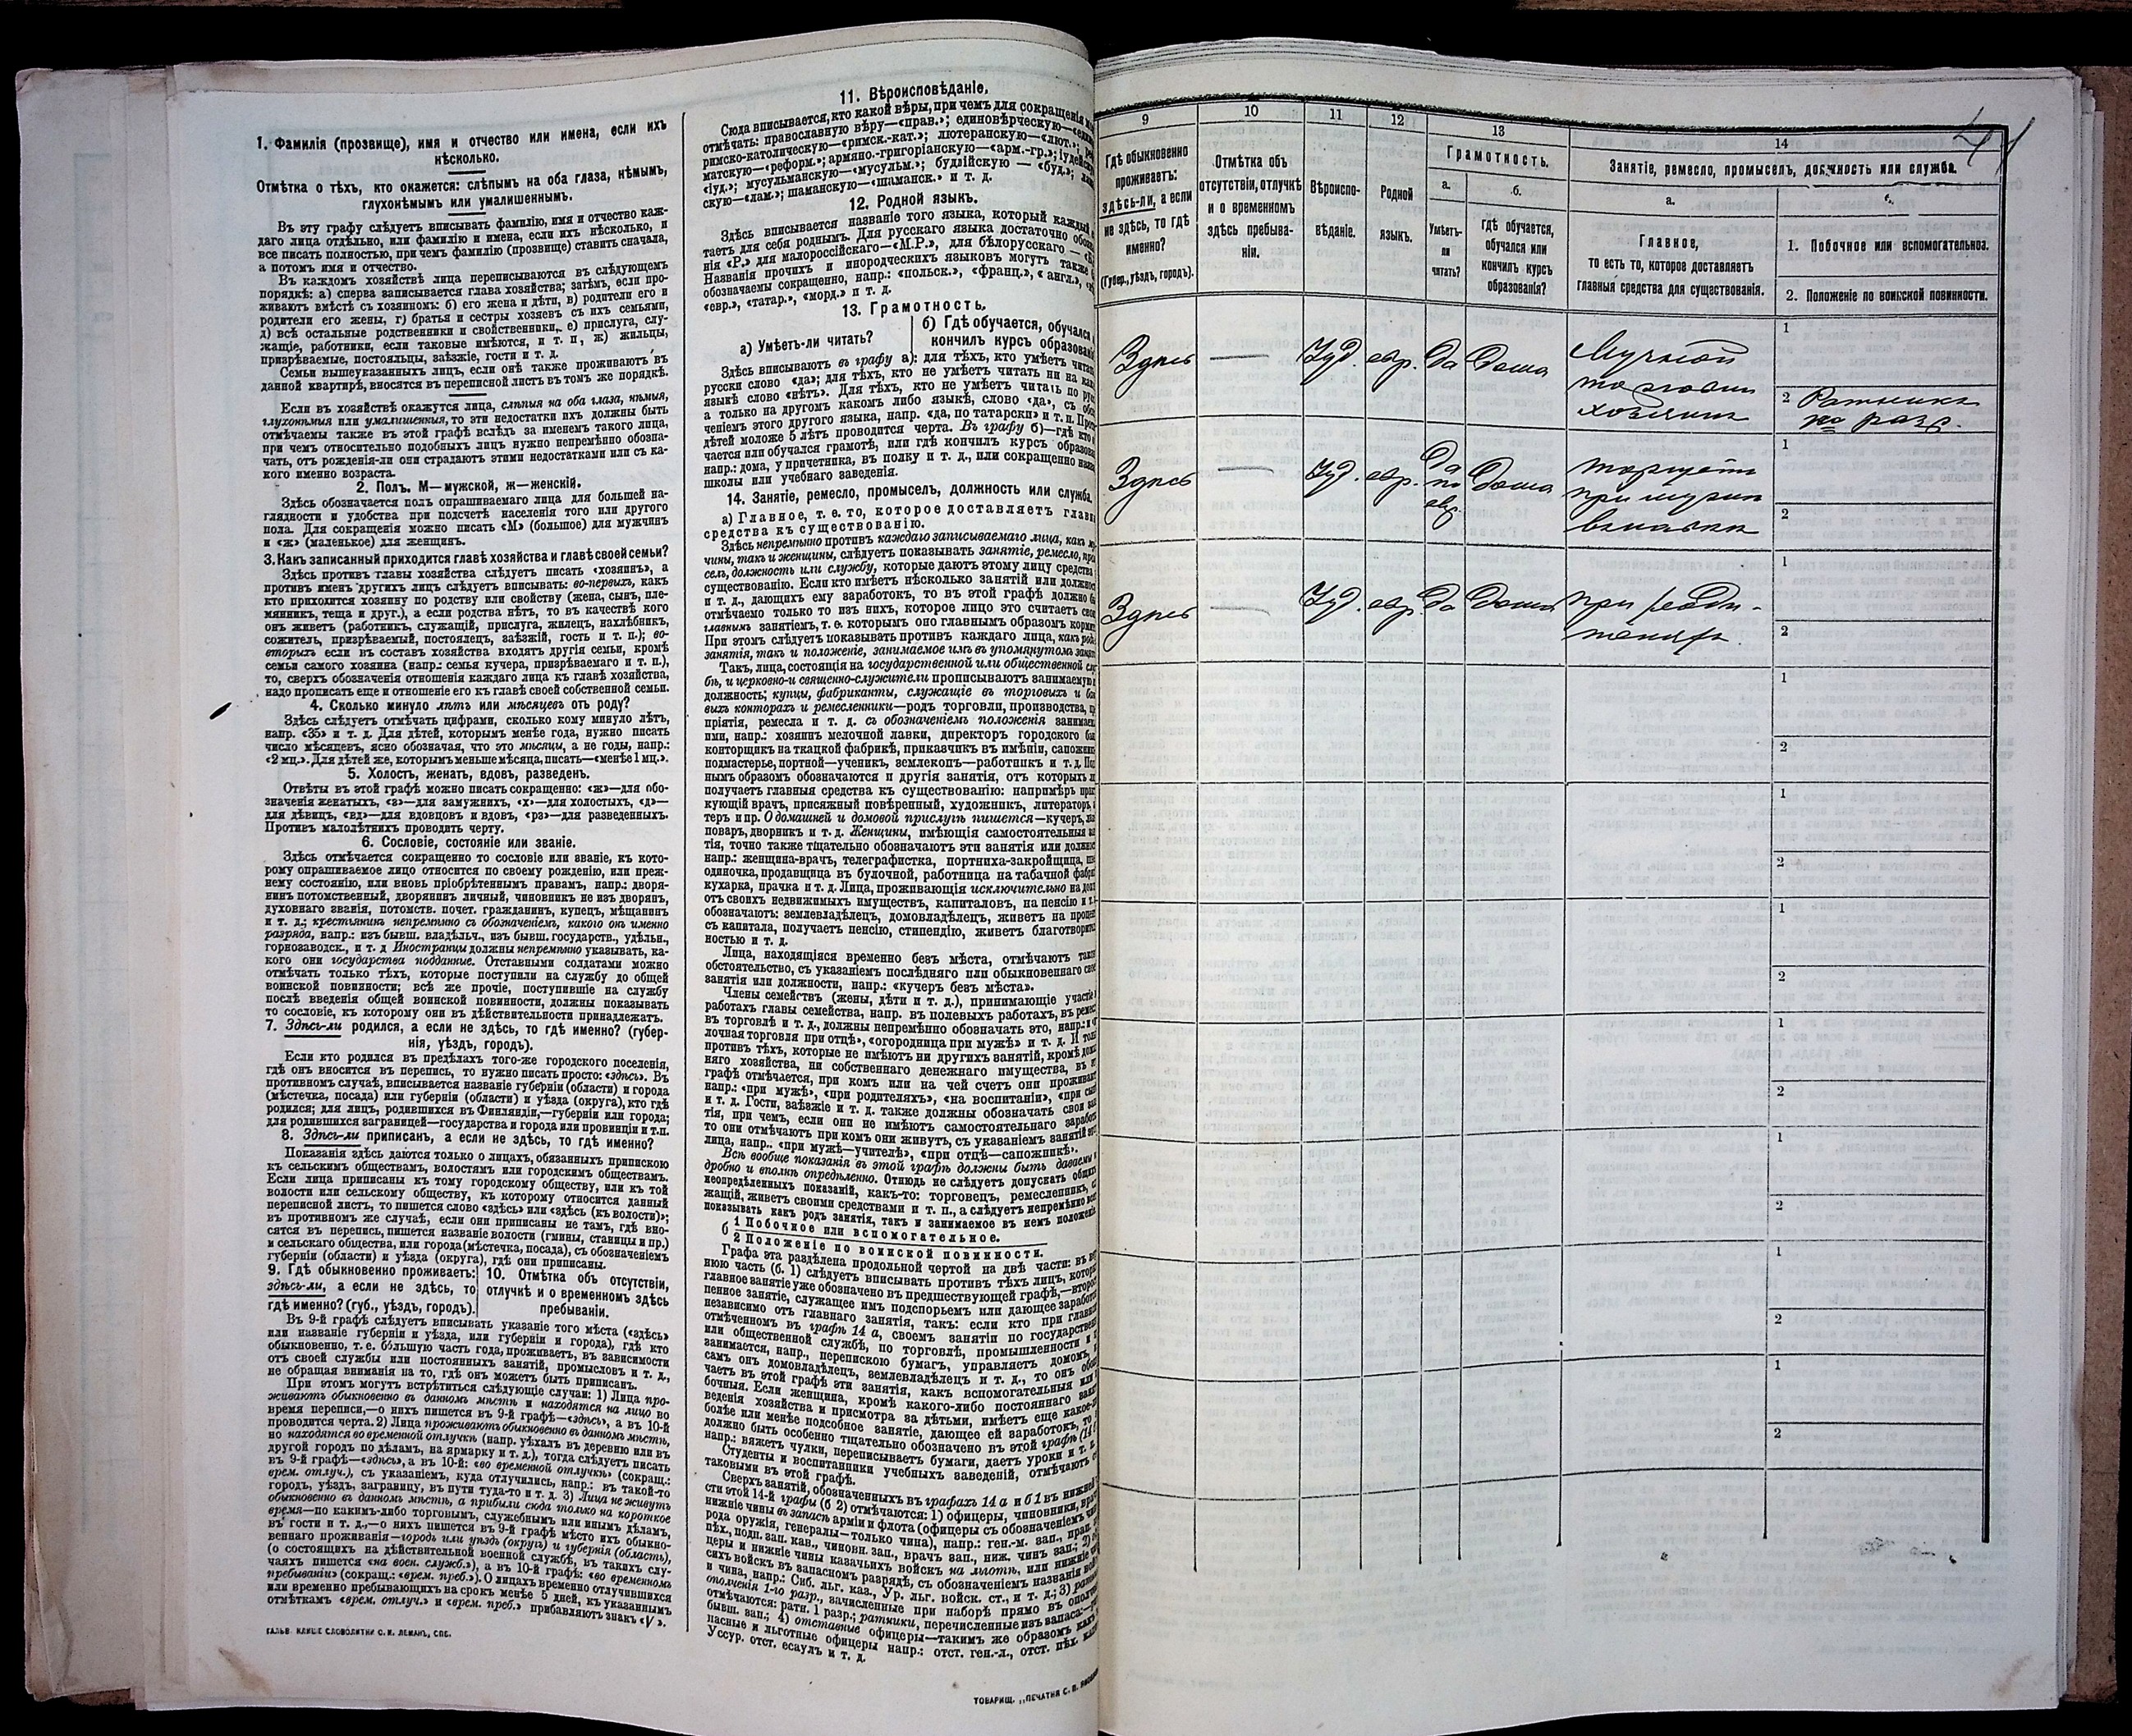 1. Фамилія (прозвище), имя и отчество или имена, если ихъ
нѣсколько.
Отмѣтка о тѣхъ, кто окажется: слѣпымъ на оба глаза, нѣмымъ,
глухонѣмымъ или умалишеннымъ.
Въ эту графу слѣдуетъ вписывать фамилію, имя и отчество каж-
даго лица отдѣльно, или фамилію и имена, если ихъ нѣсколько, и
все писать полностью, при чемъ фамилію (прозвище) ставить сначала,
а потомъ имя и отчество.
Въ каждомъ хозяйствѣ лица переписываются въ слѣдующемъ
порядкѣ: а) сперва записывается глава хозяйства; затѣмъ, если про-
живаютъ вмѣстѣ съ хозяиномъ: б) его жена и дѣти, в) родители его и
родители его жены, г) братья и сестры хозяевъ съ ихъ семьями,
д) всѣ остальные родственники и свойственники, е) прислуга, слу-
жащіе, работники, если таковые имѣются, и т. п, ж) жильцы,
призрѣваемые, постояльцы, заѣзжіе, гости и т. д.
Семьи вышеуказанныхъ лицъ, если онѣ также проживаютъ въ
данной квартирѣ, вносятся въ переписной листъ въ томъ же порядкѣ.
Если въ хозяйствѣ окажутся лица, слѣпыя на оба глаза, нѣмыя,
глухонѣмыя или умалишенныя, то эти недостатки ихъ должны быть
отмѣчаемы также въ этой графѣ вслѣдъ за именемъ такого лица,
при чемъ относительно подобныхъ лицъ нужно непремѣнно обозна-
чать, отъ рожденія-ли они страдаютъ этими недостатками или съ ка-
кого именно возраста.
2. Полъ. М—мужской, ж—женскій.
Здѣсь обозначается полъ опрашиваемаго лица для большей на-
глядности и удобства при подсчетѣ населенія того или другого
пола. Для сокращенія можно писать «М» (большое) для мужчинъ
и «ж» (маленькое) для женщинъ.
3. Какъ записанный приходится главѣ хозяйства и главѣ своей семьи?
Здѣсь противъ главы хозяйства слѣдуетъ писать «хозяинъ», а
противъ именъ другихъ лицъ слѣдуетъ вписывать: во-первыхъ, какъ
кто приходится хозяину по родству или свойству (жена, сынъ, пле-
мянникъ, теща и друг.), а если родства нѣтъ, то въ качествѣ кого
онъ живетъ (работникъ, служащій, прислуга, жилецъ, нахлѣбникъ,
сожитель, призрѣваемый, постоялецъ, заѣзжій, гость и т. п.); во-
вторыхъ если въ составъ хозяйства входятъ другія семьи, кромѣ
семьи самого хозяина (напр.: семья кучера, призрѣваемаго и т. п.),
то, сверхъ обозначенія отношенія каждаго лица къ главѣ хозяйства,
надо прописать еще и отношеніе его къ главѣ своей собственной семьи.
4. Сколько минуло лѣтъ или мѣсяцевъ отъ роду?
Здѣсь слѣдуетъ отмѣчать цифрами, сколько кому минуло лѣтъ,
напр. «35» и т. д. Для дѣтей, которымъ менѣе года, нужно писать
число мѣсяцевъ, ясно обозначая, что это мѣсяцы, а не годы, напр.:
«2 мц.». Для дѣтей же, которымъ меньше мѣсяца, писать—«менѣе 1 мц.».
5. Холостъ, женатъ, вдовъ, разведенъ.
Отвѣты въ этой графѣ можно писать сокращенно: «ж»—для обо-
значенія женатыхъ, «з»—для замужнихъ, «х»—для холостыхъ, «д»—
для дѣвицъ, «вд»—для вдовцовъ и вдовъ, «рз»—для разведенныхъ.
Противъ малолѣтнихъ проводить черту.
6. Сословіе, состояніе или званіе.
Здѣсь отмѣчается сокращенно то сословіе или званіе, къ кото-
рому опрашиваемое лицо относится по своему рожденію, или преж-
нему состоянію, или вновь пріобрѣтеннымъ правамъ, напр.: дворя-
нинъ потомственный, дворянинъ личный, чиновникъ не изъ дворянъ,
духовнаго званія, потомств. почет. гражданинъ, купецъ, мѣщанинъ
и т. д.; крестьянинъ непремѣнно съ обозначеніемъ, какого онъ именно
разряда, напр.: изъ бывш. владѣльч., изъ бывш. государств., удѣльн.,
горнозаводск., и т. д Иностранцы должны непремѣнно указывать, ка-
кого они государства подданные. Отставными солдатами можно
отмѣчать только тѣхъ, которые поступили на службу до общей
воинской повинности; всѣ же прочіе, поступившіе на службу
послѣ введенія общей воинской повинности, должны показывать
то сословіе, къ которому они въ дѣйствительности принадлежатъ.
7. Здѣсь-ли родился, а если не здѣсь, то гдѣ именно? (губер-
нія, уѣздъ, городъ).
Если кто родился въ предѣлахъ того-же городского поселенія,
гдѣ онъ вносится въ перепись, то нужно писать просто: «здѣсь». Въ
противномъ случаѣ, вписывается названіе губерніи (области) и города
(мѣстечка, посада) или губерніи (области) и уѣзда (округа), кто гдѣ
родился; для лицъ, родившихся въ Финляндіи,—губерніи или города;
для родившихся заграницей—государства и города или провинціи и т.п.
8. Здѣсь-ли приписанъ, а если не здѣсь, то гдѣ именно?
Показанія здѣсь даются только о лицахъ, обязанныхъ припискою
къ сельскимъ обществамъ, волостямъ или городскимъ обществамъ.
Если лица приписаны къ тому городскому обществу, или къ той
волости или сельскому обществу, къ которому относится данный
переписной листъ, то пишется слово «здѣсь» или «здѣсь (къ волости)»;
въ противномъ же случаѣ, если они приписаны не тамъ, гдѣ вно-
сятся въ перепись, пишется названіе волости (гмины, станицы и пр.)
и сельскаго общества, или города (мѣстечка, посада), съ обозначеніемъ
губерніи (области) и уѣзда (округа), гдѣ они приписаны.
9. Гдѣ обыкновенно проживаетъ:
здѣсь-ли, а если не здѣсь, то
гдѣ именно? (губ., уѣздъ, городъ).
10. Отмѣтка объ отсутствіи,
отлучкѣ и о временномъ здѣсь
пребываніи.
Въ 9-й графѣ слѣдуетъ вписывать указаніе того мѣста («здѣсь»
или названіе губерніи и уѣзда, или губерніи и города), гдѣ кто
обыкновенно, т. е. бо́льшую часть года, проживаетъ, въ зависимости
отъ своей службы или постоянныхъ занятій, промысловъ и т. д.,
не обращая вниманія на то, гдѣ онъ можетъ быть приписанъ.
При этомъ могутъ встрѣтиться слѣдующіе случаи: 1) Лица про-
живаютъ обыкновенно въ данномъ мѣстѣ и находятся на лицо во
время переписи,—о нихъ пишется въ 9-й графѣ—«здѣсь», а въ 10-й
проводится черта. 2) Лица проживаютъ обыкновенно въ данномъ мѣстѣ,
но находятся во временной отлучкѣ (напр. уѣхалъ въ деревню или въ
другой городъ по дѣламъ, на ярмарку и т. д.), тогда слѣдуетъ писать
въ 9-й графѣ—«здѣсь», а въ 10-й: «во временной отлучкѣ» (сокращ.:
врем. отлуч.), съ указаніемъ, куда отлучились, напр.: въ такой-то
городъ, уѣздъ, заграницу, въ пути туда-то и т. д. 3) Лица не живутъ
обыкновенно въ данномъ мѣстѣ, а прибыли сюда только на короткое
время—по какимъ-либо торговымъ, служебнымъ или инымъ дѣламъ,
въ гости и т. д.,—о нихъ пишется въ 9-й графѣ мѣсто ихъ обыкно-
веннаго проживанія—городъ или уѣздъ (округъ) и губернія (область),
(о состоящихъ на дѣйствительной военной службѣ, въ такихъ слу-
чаяхъ пишется «на воен. службѣ»), а въ 10-й графѣ: «во временномъ
пребываніи» (сокращ.: «врем. преб.»). О лицахъ временно отлучившихся
или временно пребывающихъ на срокъ менѣе 5 дней, къ указаннымъ
отмѣткамъ «врем. отлуч.» и «врем. преб.» прибавляютъ знакъ «V».
ГАЛЬВ. КЛИШЕ СЛОВОЛИТНИ О. И. ЛЕМАНЪ, СПБ.
11. Вѣроисповѣданіе.
Сюда вписывается, кто какой вѣры, при чемъ для сокращенія
отмѣчать: православную вѣру—«прав.»; единовѣрческую—
римско-католическую—«римск.-кат.»; лютеранскую—«лют.»;
матскую—«реформ.»; армяно.-григоріанскую—«арм.-гр.»;
«іуд.»; мусульманскую—«мусульм.»; буддійскую — «буд.»;
скую—«лам.»; шаманскую—«шаманск.» и т. д.
12. Родной языкъ.
Здѣсь вписывается названіе того языка, который каждый
таетъ для себя роднымъ. Для русскаго языка достаточно
нія «Р.» для малороссійскаго—«М.Р.», для бѣлорусскаго —
Названія прочихъ и инородческихъ языковъ могутъ также
обозначаемы сокращенно, напр.: «польск.», «франц.», «англ.»,
«евр.», «татар.», «морд.» и т. д.
13. Грамотность.
а) Умѣетъ-ли читать?
б) Гдѣ обучается, обучался
кончилъ курсъ
Здѣсь вписываютъ въ графу а): для тѣхъ, кто умѣетъ
русски слово «да»; для тѣхъ, кто не умѣетъ читать ни на
языкѣ слово «нѣтъ». Для тѣхъ, кто не умѣетъ читать по
а только на другомъ какомъ либо языкѣ, слово «да», съ
ченіемъ этого другого языка, напр. «да, по татарски» и т. п.
дѣтей моложе 5 лѣтъ проводится черта. Въ графу б)—гдѣ кто
чается или обучался грамотѣ, или гдѣ кончилъ курсъ
напр.: дома, у причетника, въ полку и т. д., или сокращенно
школы или учебнаго заведенія.
14. Занятіе, ремесло, промыселъ, должность или служба.
а) Главное, т. е. то, которое доставляетъ
средства къ существованію.
Здѣсь непремѣнно противъ каждаго записываемаго лица, какъ
чины, такъ и женщины, слѣдуетъ показывать занятіе, ремесло,
селъ, должность или службу, которые даютъ этому лицу средства
существованію. Если кто имѣетъ нѣсколько занятій или
и т. д., дающихъ ему заработокъ, то въ этой графѣ должно
отмѣчаемо только то изъ нихъ, которое лицо это считаетъ
главнымъ занятіемъ, т. е. которымъ оно главнымъ образомъ
При этомъ слѣдуетъ показывать противъ каждаго лица, какъ
занятія, такъ и положеніе, занимаемое имъ въ упомянутомъ
Такъ, лица, состоящія на государственной или общественной
бѣ, и церковно-и священно-служители прописываютъ занимаемую
должность; купцы, фабриканты, служащіе въ торговыхъ и
выхъ конторахъ и ремесленники—родъ торговли, производства,
пріятія, ремесла и т. д. съ обозначеніемъ положенія
ими, напр.: хозяинъ мелочной лавки, директоръ городского
конторщикъ на ткацкой фабрикѣ, приказчикъ въ имѣніи,
подмастерье, портной—ученикъ, землекопъ—работникъ и т. д.
нымъ образомъ обозначаются и другія занятія, отъ которыхъ
получаетъ главныя средства къ существованію: напримѣръ
кующій врачъ, присяжный повѣренный, художникъ, литераторъ,
теръ и пр. О домашней и домовой прислугѣ пишется—кучеръ,
поваръ, дворникъ и т. д. Женщины, имѣющія самостоятельныя
тія, точно также тщательно обозначаютъ эти занятія или
напр.: женщина-врачъ, телеграфистка, портниха-закройщица,
одиночка, продавщица въ булочной, работница на табачной
кухарка, прачка и т. д. Лица, проживающія исключительно на
отъ своихъ недвижимыхъ имуществъ, капиталовъ, на пенсію и т.
обозначаютъ: землевладѣлецъ, домовладѣлецъ, живетъ на
съ капитала, получаетъ пенсію, стипендію, живетъ
ностью и т. д.
Лица, находящіяся временно безъ мѣста, отмѣчаютъ
обстоятельство, съ указаніемъ послѣдняго или обыкновеннаго
занятія или должности, напр.: «кучеръ безъ мѣста».
Члены семействъ (жены, дѣти и т. д.), принимающіе участіе
работахъ главы семейства, напр. въ полевыхъ работахъ, въ
въ торговлѣ и т. д., должны непремѣнно обозначать это, напр.:
лочная торговля при отцѣ», «огородница при мужѣ» и т. д. И
противъ тѣхъ, которые не имѣютъ ни другихъ занятій, кромѣ
няго хозяйства, ни собственнаго денежнаго имущества, въ
графѣ отмѣчается, при комъ или на чей счетъ они
напр.: «при мужѣ», «при родителяхъ», «на воспитаніи», «при
и т. д. Гости, заѣзжіе и т. д. также должны обозначать свои
тія, при чемъ, если они не имѣютъ самостоятельнаго
то они отмѣчаютъ при комъ они живутъ, съ указаніемъ занятій
лица, напр.. «при мужѣ—учителѣ», «при отцѣ—сапожникѣ».
Всѣ вообще показанія въ этой графѣ должны быть даваемы
дробно и вполнѣ опредѣленно. Отнюдь не слѣдуетъ допускать
неопредѣленныхъ показаній, какъ-то: торговецъ, ремесленникъ,
жащій, живетъ своими средствами и т. п., а слѣдуетъ непремѣнно
показывать какъ родъ занятія, такъ и занимаемое въ немъ
б 1 Побочное или вспомогательное.
2 Положеніе по воинской повинности.
Графа эта раздѣлена продольной чертой на двѣ части: въ
нюю часть (б. 1) слѣдуетъ вписывать противъ тѣхъ лицъ,
главное занятіе уже обозначено въ предшествующей графѣ,—
пенное занятіе, служащее имъ подспорьемъ или дающее
независимо отъ главнаго занятія, такъ: если кто при
отмѣченномъ въ графѣ 14 а, своемъ занятіи по
или общественной службѣ, по торговлѣ, промышленности и
занимается, напр., перепискою бумагъ, управляетъ домомъ,
самъ онъ домовладѣлецъ, землевладѣлецъ и т. д., то онъ
чаетъ въ этой графѣ эти занятія, какъ вспомогательныя или
бочныя. Если женщина, кромѣ какого-либо постояннаго
веденія хозяйства и присмотра за дѣтьми, имѣетъ еще
болѣе или менѣе подсобное занятіе, дающее ей заработокъ, то
должно быть особенно тщательно обозначено въ этой графѣ
напр.: вяжетъ чулки, переписываетъ бумаги, даетъ уроки и т. п.
Студенты и воспитанники учебныхъ заведеній, отмѣчаютъ
таковыми въ этой графѣ.
Сверхъ занятій, обозначенныхъ въ графахъ 14 а и б 1 въ
сти этой 14-й графы (б 2) отмѣчаются: 1) офицеры, чиновники,
нижніе чины въ запасѣ арміи и флота (офицеры съ обозначеніемъ
рода оружія, генералы—только чина), напр.: ген.-м. зап.,
пѣх., подп. зап. кав., чиновн. зап., врачъ зап., ниж. чинъ зап.; 2)
церы и нижніе чины казачьихъ войскъ на льготѣ, или
сихъ войскъ въ запасномъ разрядѣ, съ обозначеніемъ названія
и чина, напр.: Сиб. льг. каз., Ур. льг. войск. ст., и т. д.; 3)
ополченія 1-го разр., зачисленные при наборѣ прямо въ
отмѣчаются: ратн. 1 разр.; ратники, перечисленные изъ запаса:—
бывш. зап.; 4) отставные офицеры—такимъ же образомъ
пасные и льготные офицеры напр.: отст. ген.-л., отст. пѣх.
Уссур. отст. есаулъ и т. д.
ТОВАРИЩ. „ПЕЧАТНЯ С. П.
41
9 10 11 12 13 14
Гдѣ обыкновенно
проживаетъ:
здѣсь-ли, а если
не здѣсь, то гдѣ
именно?
(Губер., уѣздъ, городъ).
Отмѣтка объ
отсутствіи, отлучкѣ
и о временномъ
здѣсь пребыва-
ніи.
Вѣроиспо-
вѣданіе.
Родной
языкъ.
Грамотность.
а.
Умѣетъ-
ли
читать?
б.
Гдѣ обучается,
обучался или
кончилъ курсъ
образованія?
Занятіе, ремесло, промыселъ, должность или служба.
а.
Главное,
то есть то, которое доставляетъ
главныя средства для существованія.
1. Побочное или вспомогательное.
2. Положеніе по воинской повинности.
Здѣсь — Іуд. евр. да дома
Мучной
торговли
хозяинъ
1
2 Ратникъ
разр.
Здѣсь — Іуд. евр.
да
по
евр.
дома
торгуетъ
при мужѣ
1
2
Здѣсь — Іуд. евр. да дома
при роди-
теляхъ
1
2
1
2
1
2
1
2
1
2
1
2
1
2
1
2